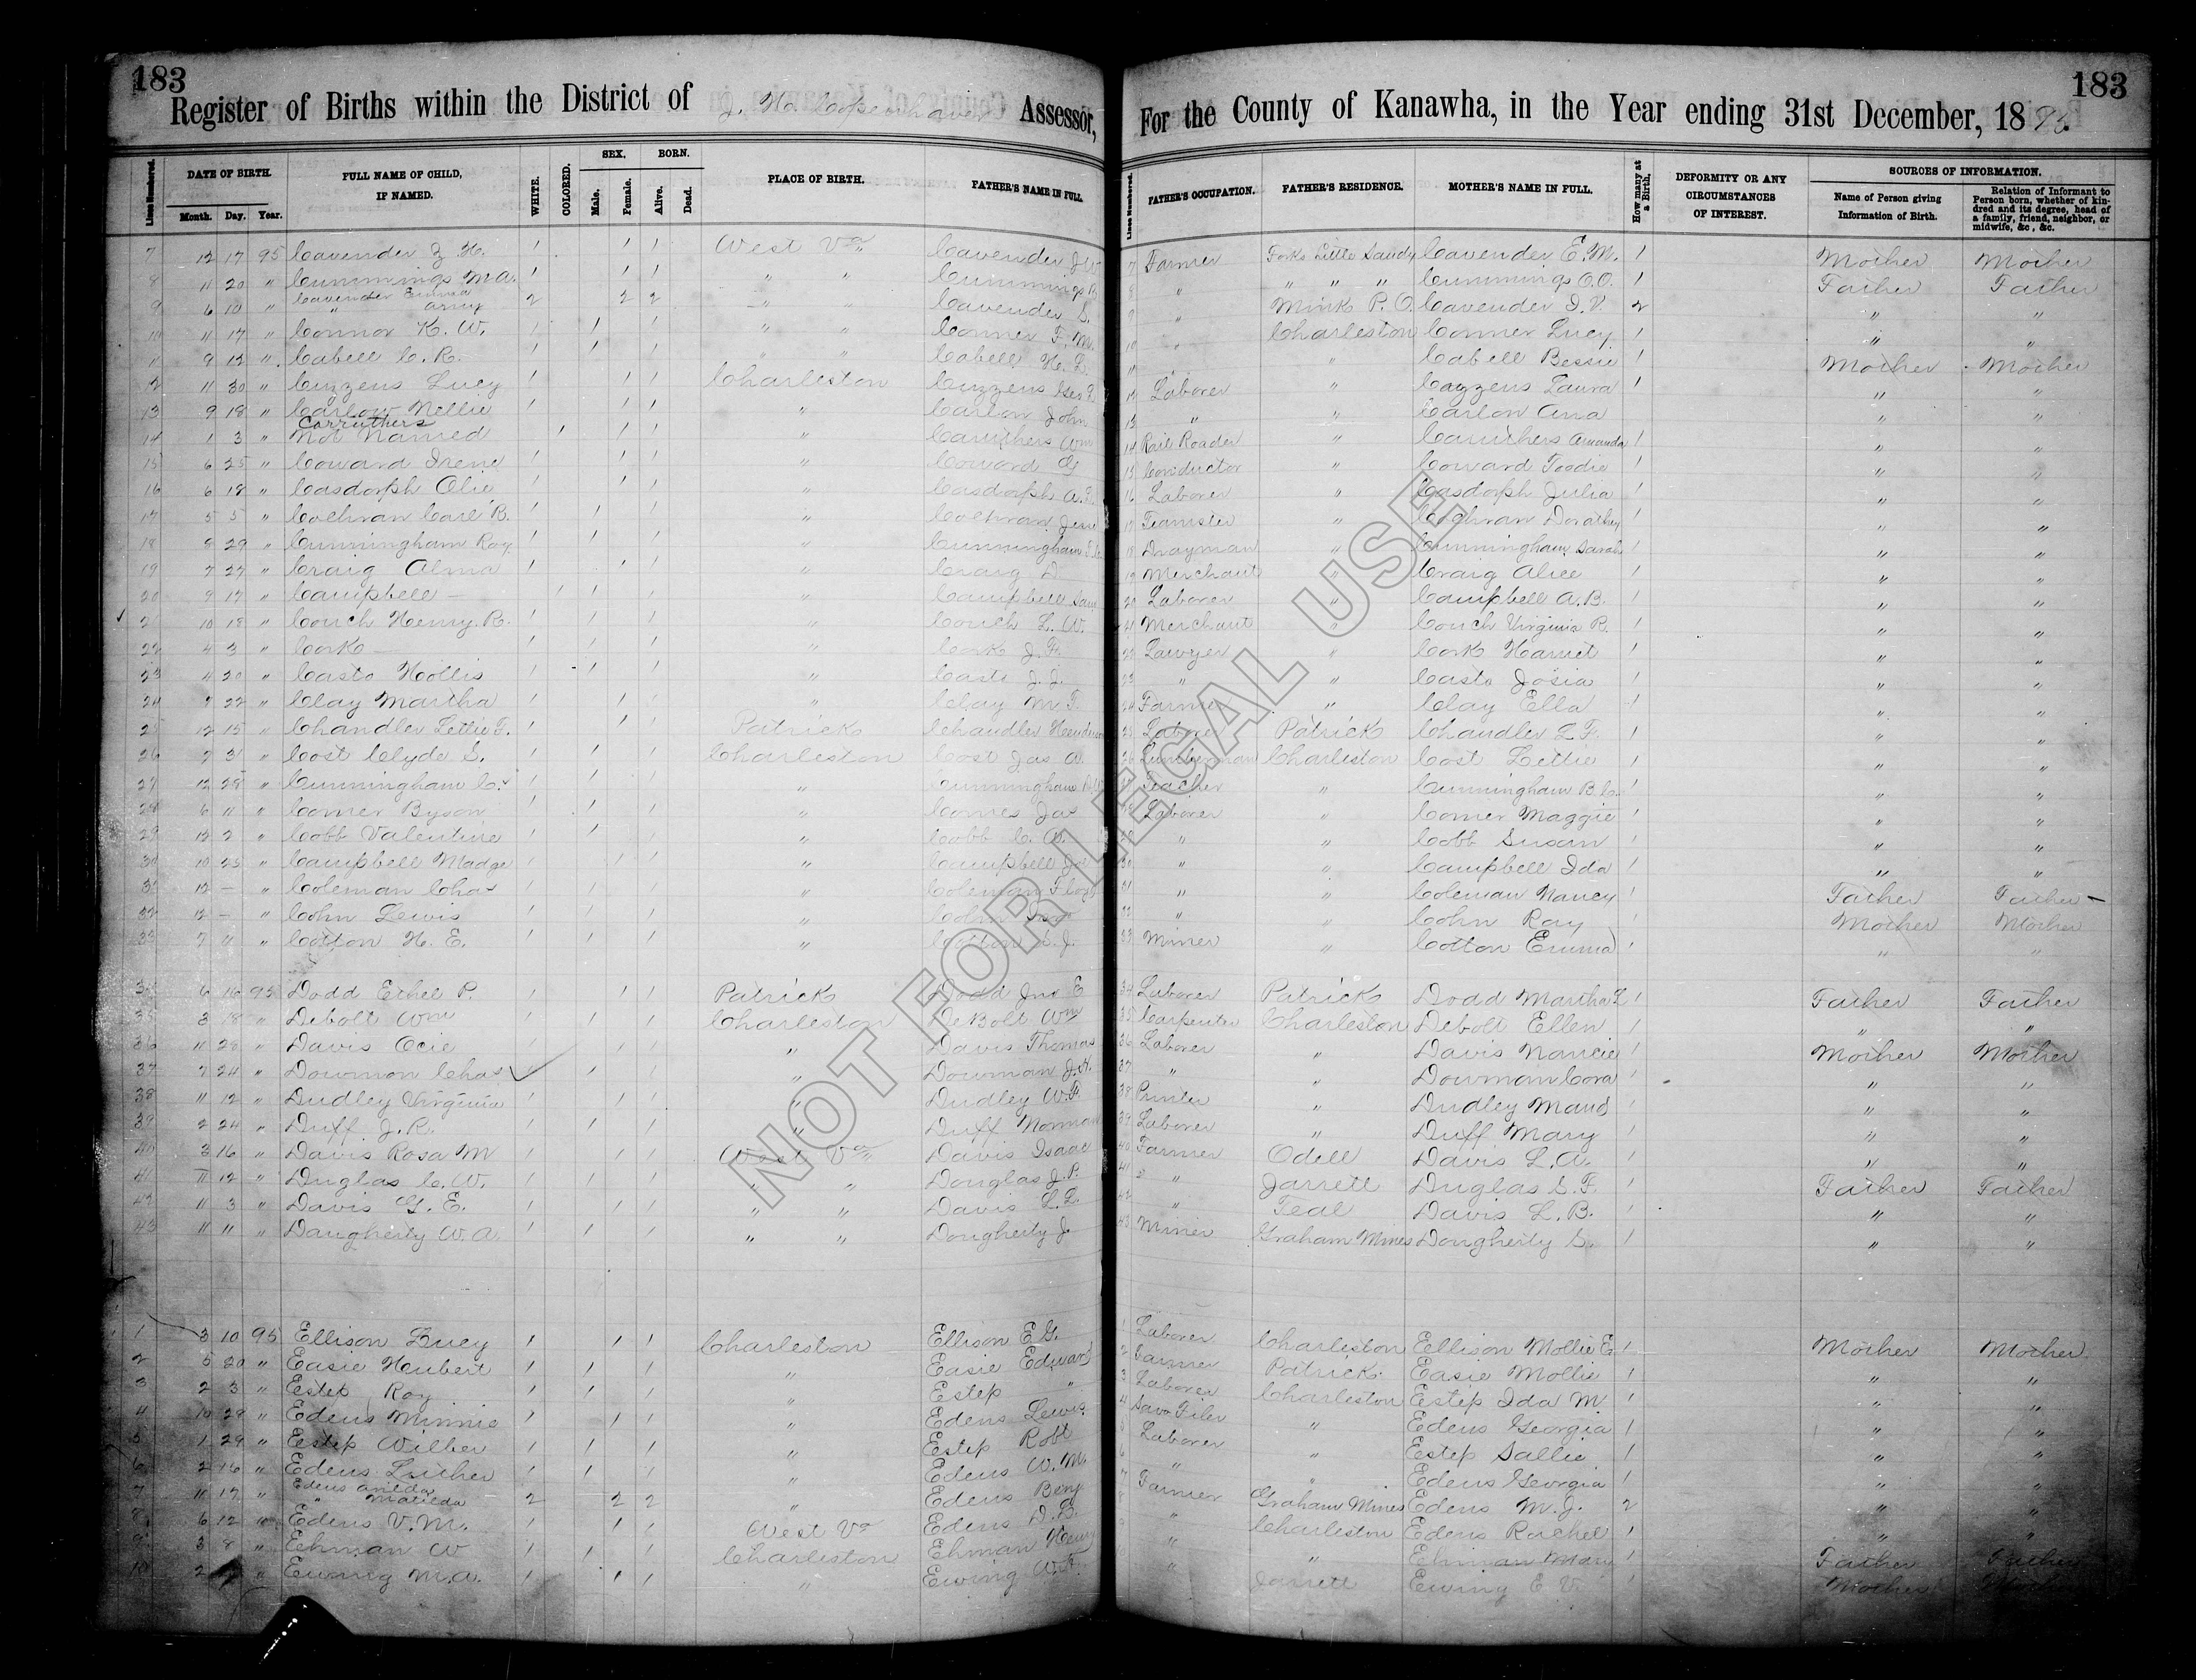 183 183
Register of Births within the District of J. W. Copenhaver Assessor, For the County of Kanawha, in the Year ending 31st December, 1895.
Lines Numbered. DATE OF BIRTH. Month. Day. Year. FULL NAME OF CHILD, IF NAMED. WHITE. COLORED. SEX. Male. Female. BORN. Alive. Dead. PLACE OF BIRTH. FATHER'S NAME IN FULL. Lines Numbered. FATHER'S OCCUPATION. FATHER'S RESIDENCE. MOTHER'S NAME IN FULL. How many at a Birth. DEFORMITY OR ANY CIRCUMSTANCES OF INTEREST. SOURCES OF INFORMATION. Name of Person giving Information of Birth. Relation of Informant to Person born, whether of kindred and its degree, head of a family, friend, neighbor, or midwife, &c., &c.
7 12 17 95 Cavender Z. H. 1 1 1 West Va Cavender J W 7 Farmer Forks Little Sandy Cavender E. M. 1 Mother Mother
8 11 20 " Cummings M A. 1 1 1 " " Cummings 8 " " " " Cummings O. O. 1 Father Father
9 6 10 " Cavender Emma " Amy 2 2 2 " " Cavender S. 9 " Mink P. O. Cavender I. V. 2 " "
10 11 17 " Connor K. W. 1 1 1 " " Conner F. M. 10 " Charleston Conner Lucy 1 " "
11 9 12 " Cabell C. R. 1 1 1 " " Cabell H. L. 11 " " Cabell Bessie 1 Mother Mother
12 11 30 " Cuzzens Lucy 1 1 1 Charleston Cuzzens Geo 12 Laborer " Cuzzens Laura 1 " "
13 9 18 " Carlow Nellie 1 1 1 " Carlon John 13 " " Carlon Ana " "
14 1 3 " Carruthers Not Named 1 1 1 " Caruthers Wm 14 Rail Roader " Caruthers Amanda 1 " "
15 6 25 " Coward Irene 1 1 1 " Coward 15 Conductor " Coward Toodie 1 " "
16 6 18 " Casdorph Olie 1 1 1 " Casdorph A. 16 Laborer " Casdorph Julia 1 " "
17 5 5 " Cochran Carl B. 1 1 1 " Cochran Jesse 17 Teamster " Coghran Dorathy 1 " "
18 8 29 " Cunningham Roy 1 1 1 " Cunningham 18 Drayman " Cunningham Sarah 1 " "
19 7 27 " Craig Alma 1 1 1 " Craig D. 19 Merchant " Craig Alice 1 " "
20 9 17 " Campbell — 1 1 1 " Campbell Sam 20 Laborer " Campbell A. B. 1 " "
21 10 18 " Couch Henry R. 1 1 1 " Couch L. W. 21 Merchant " Couch Virginia R. 1 " "
22 4 3 " Cork — 1 1 1 " Cork J. F. 22 Lawyer " Cork Harriet 1 " "
23 4 20 " Casto Hollis 1 1 1 " Casto J. J. 23 " " Casto Josia 1 " "
24 9 22 " Clay Martha 1 1 1 " Clay M. T. 24 Farmer " Clay Ella 1 " "
25 12 15 " Chandler Lettie F. 1 1 1 Patrick Chandler Henderson 25 Laborer Patrick Chandler L F. 1 " "
26 7 31 " Cost Clyde S. 1 1 1 Charleston Cost Jas A. 26 Lumberman Charleston Cost Lettie 1 " "
27 12 28 " Cunningham C. 1 1 1 " Cunningham 27 Teacher " Cunningham B. C. 1 " "
28 6 11 " Comer Byson 1 1 1 " Comes Jas 28 Laborer " Comer Maggie 1 " "
29 12 2 " Cobb Valentine 1 1 1 " Cobb C. A. 29 " " Cobb Susan 1 " "
30 10 25 " Campbell Madge 1 1 1 " Campbell 30 " " Campbell Ida 1 " "
31 12 — " Coleman Chas 1 1 1 " Coleman Floyd 31 " " Coleman Nancy 1 Father Father
32 12 — " Cohn Lewis 1 1 1 " Cohn 32 " " Cohn Ray 1 Mother Mother
33 7 11 " Cotton H. E. 1 1 1 " Cotton S. J. 33 Miner " Cotton Emma 1 " "
34 6 16 95 Dodd Ethel P. 1 1 1 Patrick Dodd Jno E 34 Laborer Patrick Dodd Martha L 1 Father Father
35 3 18 " Debolt Wm 1 1 1 Charleston DeBolt Wm 35 Carpenter Charleston Debolt Ellen 1 " "
36 11 28 " Davis Ocie 1 1 1 " Davis Thomas 36 Laborer " Davis Nancie 1 Mother Mother
37 7 24 " Dowmon Chas 1 1 1 " Dowman J. H. 37 " " Dowman Cora 1 " "
38 11 12 " Dudley Virginia 1 1 1 " Dudley W. F. 38 Printer " Dudley Maud 1 " "
39 2 24 " Duff J. R. 1 1 1 " Duff Norman 39 Laborer " Duff Mary 1 " "
40 3 16 " Davis Rosa M 1 1 1 West Va Davis Isaac 40 Farmer Odell Davis L. A. 1 " "
41 11 12 " Duglas C. W. 1 1 1 " " Douglas J. P. 41 " Jarrett Duglas S. F. 1 Father Father
42 11 3 " Davis G. E. 1 1 1 " " Davis L. L. 42 " Teal Davis L. B. 1 " "
43 11 11 " Daugherty W. A. 1 1 1 " " Dougherty J. 43 Miner Graham Mines Dougherty S. 1 " "
1 3 10 95 Ellison Lucy 1 1 1 Charleston Ellison E G. 1 Laborer Charleston Ellison Mollie E. 1 Mother Mother
2 5 20 " Easie Hubert 1 1 1 " Easie Edward 2 Farmer Patrick Easie Mollie 1 " "
3 2 3 " Estep Roy 1 1 1 " Estep " 3 Laborer Charleston Estep Ida M. 1 " "
4 10 29 " Edens Minnie 1 1 1 " Edens Lewis 4 Saw Filer " Edens Georgia 1 " "
5 1 29 " Estep Wilber 1 1 1 " Estep Robt 5 Laborer " Estep Sallie 1 " "
6 2 16 " Edens Luther 1 1 1 " Edens W. M. 6 " " Edens Georgia 1 " "
7 11 17 " Edens Analda " Matilda 2 2 2 " Edens Benj 7 Farmer Graham Mines Edens M. J. 2 " "
8 6 12 " Edens V. M. 1 1 1 West Va Edens D. B. 8 " Charleston Edens Rachel 1 " "
9 3 8 " Ehman W 1 1 1 Charleston Ehman Henry " " Ehman Mary 1 Father Father
10 2 " Ewing M. A. 1 1 1 " Ewing W. F. Jarrett Ewing E V. 1 Mother Mother
NOT FOR LEGAL USE